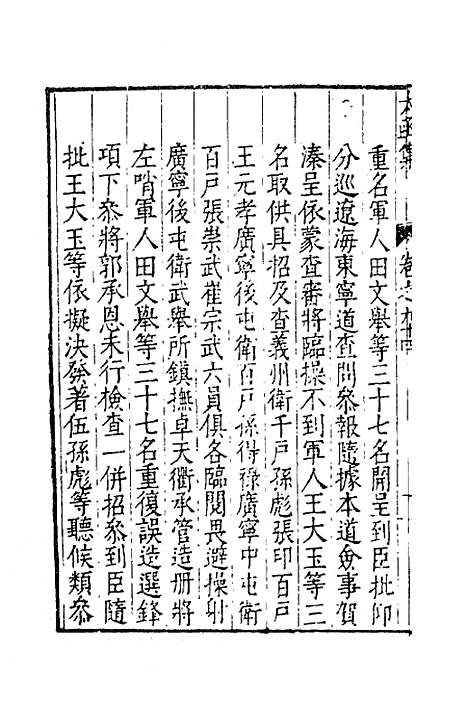 太函集 卷之九十四
重名軍人田文舉等三十七名開呈到臣批仰
分巡遼海東寧道查問叅報隨據本道僉事賀
溱呈依蒙查審將臨操不到軍人王大玉等三
名取供具招及查義州衛千戶孫彪張印百戶
王元孝廣寧後屯衛百戶孫得祿廣寧中屯衛
百戶張崇武崔宗武六員俱各臨閱畏避操射
廣寧後屯衛武舉所鎮撫卓天衢承管造册將
左哨軍人田文舉等三十七名重復誤造選鋒
項下叅將郭承恩未行檢查一併招叅到臣隨
批王大玉等依擬決發著伍孫彪等聽候類叅